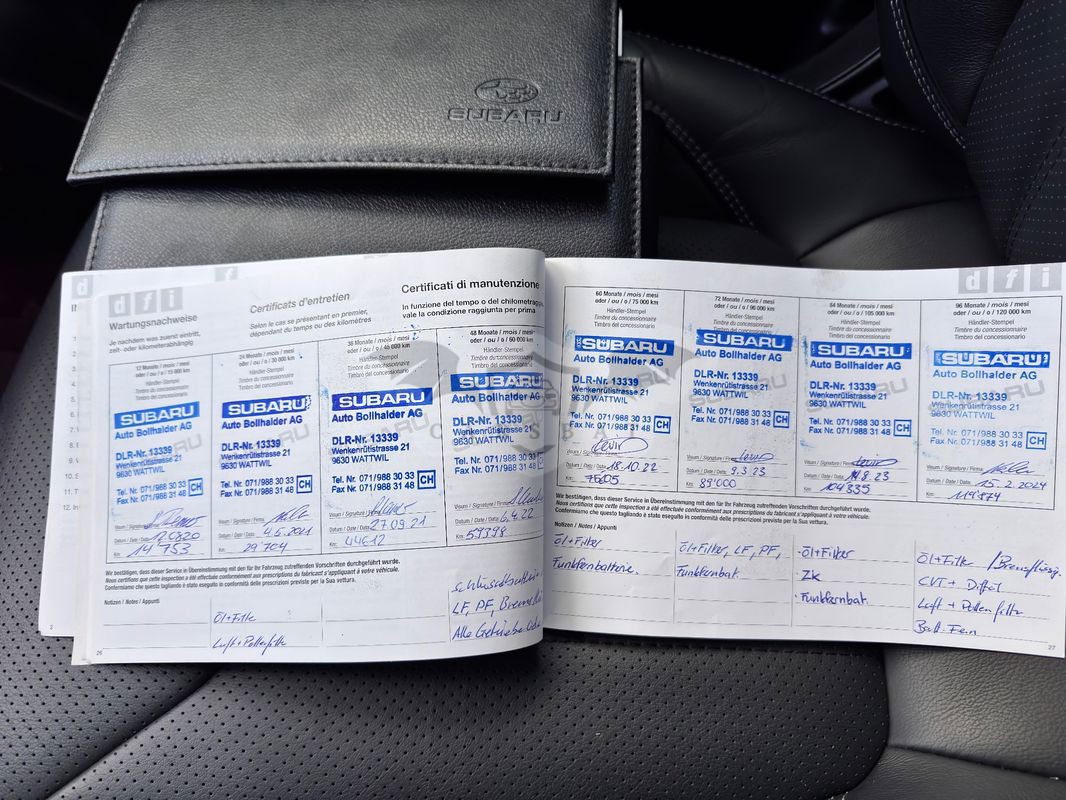 SUBARU
dfi
Wartungsnachweise
Je nachdem was zuerst eintritt,
zeit- oder kilometerabhängig
Certificats d'entretien
Selon le cas se présentant en premier,
dépendant du temps ou des kilomètres
Certificati di manutenzione
In funzione del tempo o del chilometraggio,
vale la condizione raggiunta per prima
12 Monate / mois / mesi
oder / ou / o / 15 000 km
Händler-Stempel
Timbre du concessionnaire
Timbro del concessionario
SUBARU
Auto Bollhalder AG
DLR-Nr. 13339
Wenkenrütistrasse 21
9630 WATTWIL
Tel. Nr. 071/988 30 33
Fax Nr. 071/988 31 48 CH
Visum / Signature / Firma:
Datum / Date / Data:
Km: 14 753
24 Monate / mois / mesi
oder / ou / o / 30 000 km
Händler-Stempel
Timbre du concessionnaire
Timbro del concessionario
SUBARU
Auto Bollhalder AG
DLR-Nr. 13339
Wenkenrütistrasse 21
9630 WATTWIL
Tel. Nr. 071/988 30 33
Fax Nr. 071/988 31 48 CH
Visum / Signature / Firma:
Datum / Date / Data: 4.5.2021
Km: 29 704
36 Monate / mois / mesi
oder / ou / o / 45 000 km
Händler-Stempel
Timbre du concessionnaire
Timbro del concessionario
SUBARU
Auto Bollhalder AG
DLR-Nr. 13339
Wenkenrütistrasse 21
9630 WATTWIL
Tel. Nr. 071/988 30 33
Fax Nr. 071/988 31 48 CH
Visum / Signature / Firma:
Datum / Date / Data: 27.09.21
Km: 44612
48 Monate / mois / mesi
oder / ou / o / 60 000 km
Händler-Stempel
Timbre du concessionnaire
Timbro del concessionario
SUBARU
Auto Bollhalder AG
DLR-Nr. 13339
Wenkenrütistrasse 21
9630 WATTWIL
Tel. Nr. 071/988 30 33
Fax Nr. 071/988 31 48
Visum / Signature / Firma:
Datum / Date / Data: 6.4.22
Km: 59398
Wir bestätigen, dass dieser Service in Übereinstimmung mit den für Ihr Fahrzeug zutreffenden Vorschriften durchgeführt wurde.
Nous certifions que cette inspection a été effectuée conformément aux prescriptions du fabricant s'appliquant à votre véhicule.
Confermiamo che questo tagliando è stato eseguito in conformità delle prescrizioni previste per la Sua vettura.
Notizen / Notes / Appunti
Öl+Filte
Luft+Pollenfilte
LF, PF, Brems
Alle Getriebe
26
dfi
60 Monate / mois / mesi
oder / ou / o / 75 000 km
Händler-Stempel
Timbre du concessionnaire
Timbro del concessionario
SUBARU
Auto Bollhalder AG
DLR-Nr. 13339
Wenkenrütistrasse 21
9630 WATTWIL
Tel. Nr. 071/988 30 33
Fax Nr. 071/988 31 48 CH
Visum / Signature / Firma:
Datum / Date / Data: 18.10.22
Km:
72 Monate / mois / mesi
oder / ou / o / 90 000 km
Händler-Stempel
Timbre du concessionnaire
Timbro del concessionario
SUBARU
Auto Bollhalder AG
DLR-Nr. 13339
Wenkenrütistrasse 21
9630 WATTWIL
Tel. Nr. 071/988 30 33
Fax Nr. 071/988 31 48 CH
Visum / Signature / Firma:
Datum / Date / Data: 9.3.23
Km: 89'000
84 Monate / mois / mesi
oder / ou / o / 105 000 km
Händler-Stempel
Timbre du concessionnaire
Timbro del concessionario
SUBARU
Auto Bollhalder AG
DLR-Nr. 13339
Wenkenrütistrasse 21
9630 WATTWIL
Tel. Nr. 071/988 30 33
Fax Nr. 071/988 31 48 CH
Visum / Signature / Firma:
Datum / Date / Data:
Km: 104'335
96 Monate / mois / mesi
oder / ou / o / 120 000 km
Händler-Stempel
Timbre du concessionnaire
Timbro del concessionario
SUBARU
Auto Bollhalder AG
DLR-Nr. 13339
Wenkenrütistrasse 21
9630 WATTWIL
Tel. Nr. 071/988 30 33
Fax Nr. 071/988 31 48 CH
Visum / Signature / Firma:
Datum / Date / Data: 15.2.2024
Km: 119'874
Wir bestätigen, dass dieser Service in Übereinstimmung mit den für Ihr Fahrzeug zutreffenden Vorschriften durchgeführt wurde.
Nous certifions que cette inspection a été effectuée conformément aux prescriptions du fabricant s'appliquant à votre véhicule.
Confermiamo che questo tagliando è stato eseguito in conformità delle prescrizioni previste per la Sua vettura.
Notizen / Notes / Appunti
Öl+Filter
Funkfernbatterie.
Öl+Filter, LF, PF,
Funkfernbat.
Öl+Filter
ZK
Funkfernbat.
Öl+Filte / Bremsflüssig.
CVT + Difföl
Luft + Pollenfilte
Batt. Fern
27